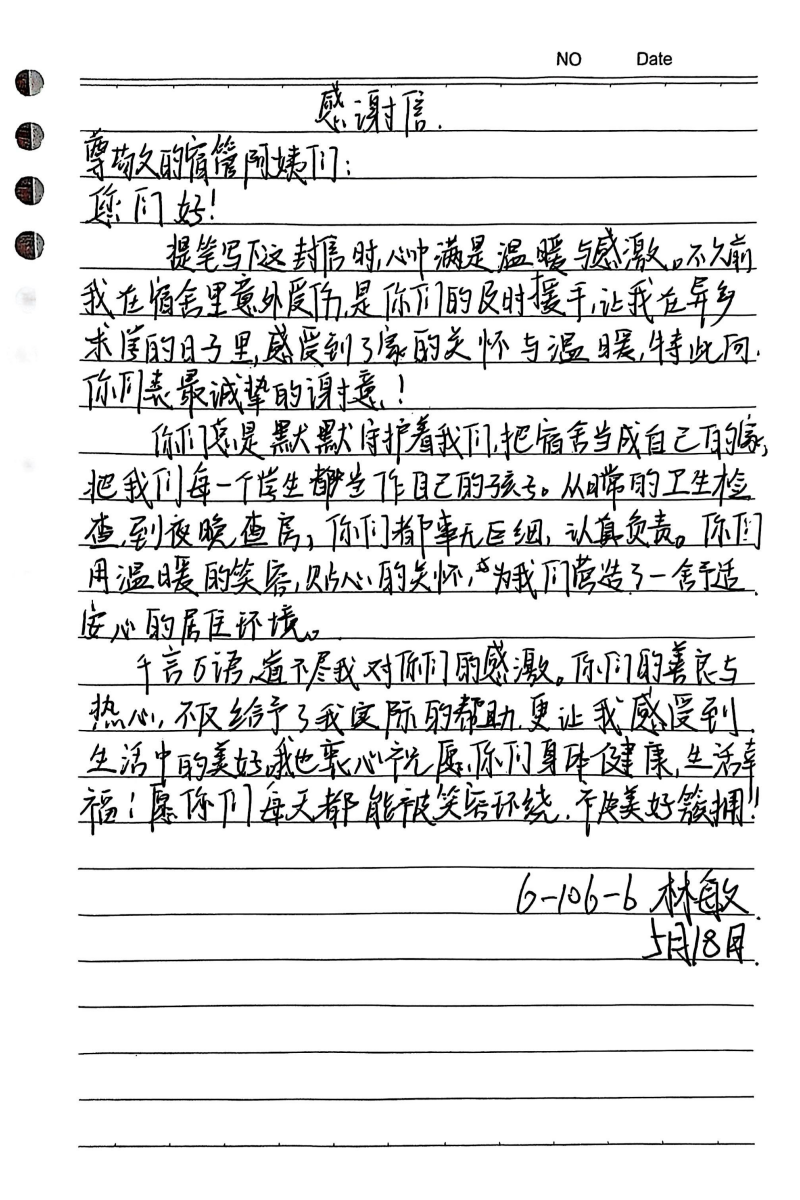 NO Date
感谢信.
尊敬的宿管阿姨们:
您们好!
提笔写下这封信时,心中满是温暖与感激。不久前
我在宿舍里意外受伤,是你们的及时援手,让我在异乡
求学的日子里,感受到了家的关怀与温暖,特此向
你们表最诚挚的谢意!
你们总是默默守护着我们,把宿舍当成自己的家,
把我们每一个学生都当作自己的孩子。从日常的卫生检
查,到夜晚查房,你们都事无巨细,认真负责。你们
用温暖的笑容,贴心的关怀,为我们营造了一舍舒适
安心的居住环境。
千言万语,道不尽我对你们的感激。你们的善良与
热心,不仅给予了我实际的帮助,更让我感受到
生活中的美好,我也衷心祝愿,你们身体健康,生活幸
福!愿你们每天都能被笑容环绕,被美好簇拥!
6-106-6 林敏
5月18日.